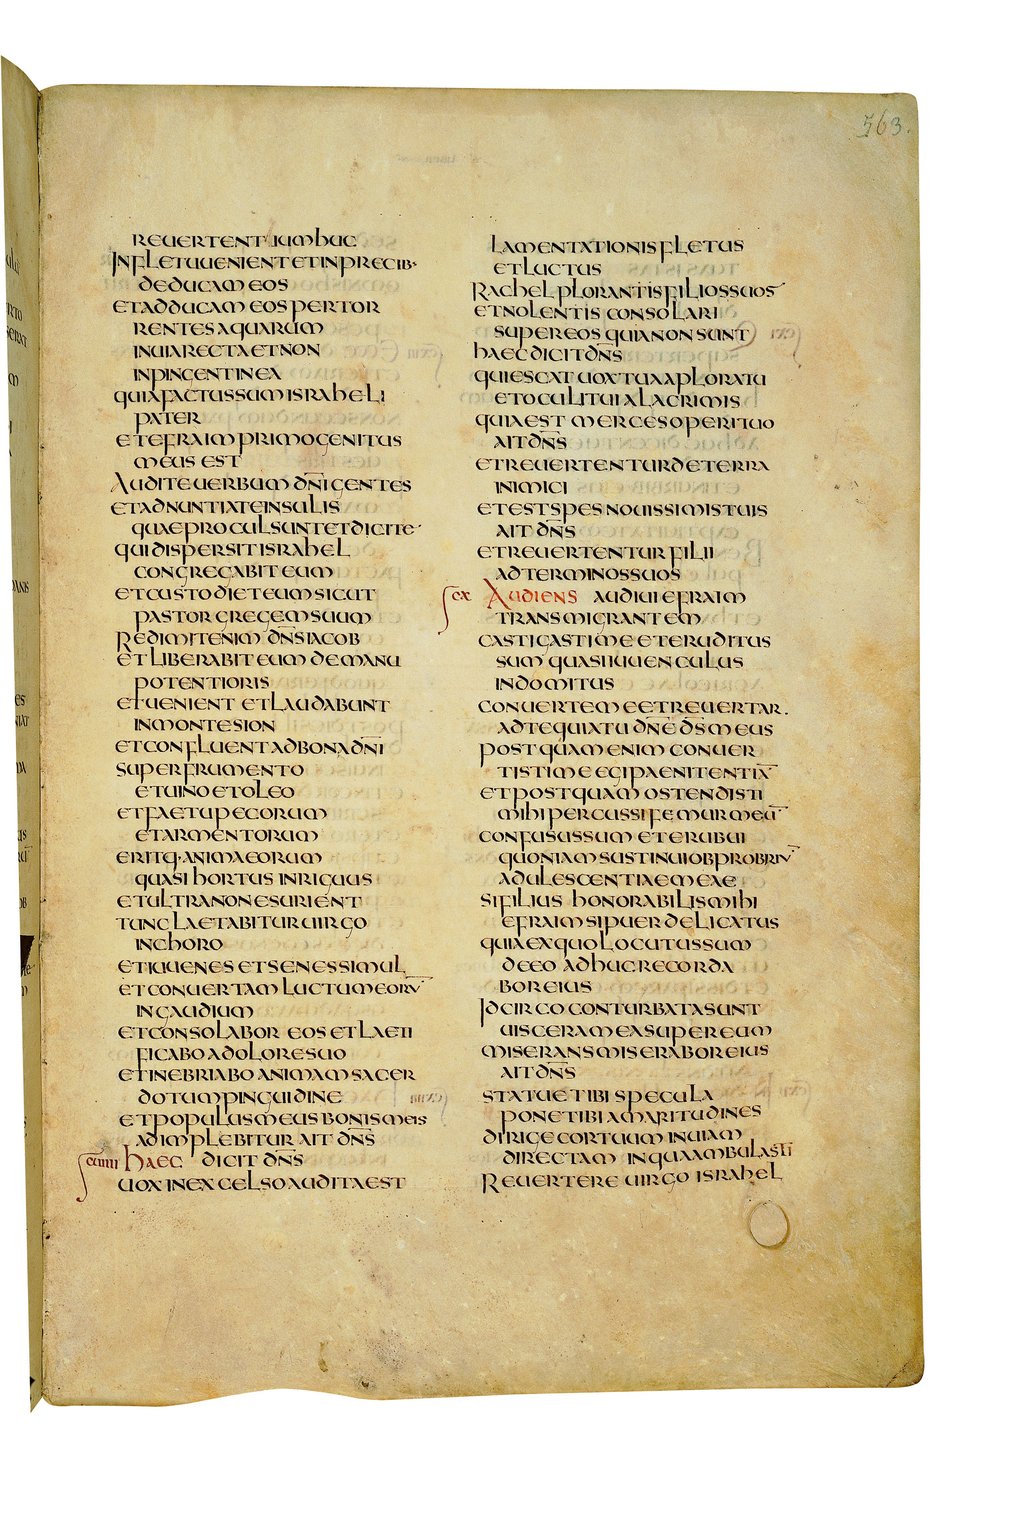 563.
REUERTENTUR HUC
IN FLETU UENIENT ET IN PRECIB·
DEDUCAM EOS
ET ADDUCAM EOS PER TOR
RENTES AQUARUM
IN UIA RECTA ET NON
INPINGENT IN EA
QUIA FACTUS SUM ISRAHELI
PATER
ET EFRAIM PRIMOGENITUS
MEUS EST
AUDITE UERBUM DN̅I GENTES
ET ADNUNTIATE INSULIS
QUAE PROCUL SUNT ET DICITE·
QUI DISPERSIT ISRAHEL
CONGREGABIT EUM
ET CUSTODIET EUM SICUT
PASTOR GREGEM SUUM
REDIMIT ENIM DN̅S IACOB
ET LIBERABIT EUM DE MANU
POTENTIORIS
ET UENIENT ET LAUDABUNT
IN MONTE SION
ET CONFLUENT AD BONA DN̅I
SUPER FRUMENTO
ET UINO ET OLEO
ET FAETU PECORUM
ET ARMENTORUM
ERITQ· ANIMA EORUM
QUASI HORTUS INRIGUUS
ET ULTRA NON ESURIENT
TUNC LAETABITUR UIRGO
IN CHORO
ET IUUENES ET SENES SIMUL
ET CONUERTAM LUCTUM EORU̅
IN GAUDIUM
ET CONSOLABOR EOS ET LAETI
FICABO A DOLORE SUO
ET INEBRIABO ANIMAM SACER
DOTUM PINGUIDINE
ET POPULUS MEUS BONIS MEIS
ADIMPLEBITUR AIT DN̅S
HAEC DICIT DN̅S
UOX IN EXCELSO AUDITA EST
LAMENTATIONIS FLETUS
ET LUCTUS
RACHEL PLORANTIS FILIOS SUOS
ET NOLENTIS CONSOLARI
SUPER EOS QUIA NON SUNT
HAEC DICIT DN̅S
QUIESCAT UOX TUA A PLORATU
ET OCULI TUI A LACRIMIS
QUIA EST MERCES OPERI TUO
AIT DN̅S
ET REUERTENTUR DE TERRA
INIMICI
ET EST SPES NOUISSIMIS TUIS
AIT DN̅S
ET REUERTENTUR FILII
AD TERMINOS SUOS
cx AUDIENS AUDIUI EFRAIM
TRANSMIGRANTEM
CASTIGASTI ME ET ERUDITUS
SUM QUASI IUUENCULUS
INDOMITUS
CONUERTE ME ET REUERTAR.
AD TE QUIA TU DN̅E DS̅ MEUS
POSTQUAM ENIM CONUER
TISTI ME EGI PAENITENTIA̅
ET POSTQUAM OSTENDISTI
MIHI PERCUSSI FEMUR MEU̅
CONFUSUS SUM ET ERUBUI
QUONIAM SUSTINUI OBPROBRIU̅
ADULESCENTIAE MEAE
SI FILIUS HONORABILIS MIHI
EFRAIM SI PUER DELICATUS
QUIA EX QUO LOCUTUS SUM
DE EO ADHUC RECORDA
BOR EIUS
IDCIRCO CONTURBATA SUNT
UISCERA MEA SUPER EUM
MISERANS MISERABOR EIUS
AIT DN̅S
STATUE TIBI SPECULA
PONE TIBI AMARITUDINES
DIRIGE COR TUUM IN UIAM
DIRECTAM IN QUA AMBULASTI
REUERTERE UIRGO ISRAHEL